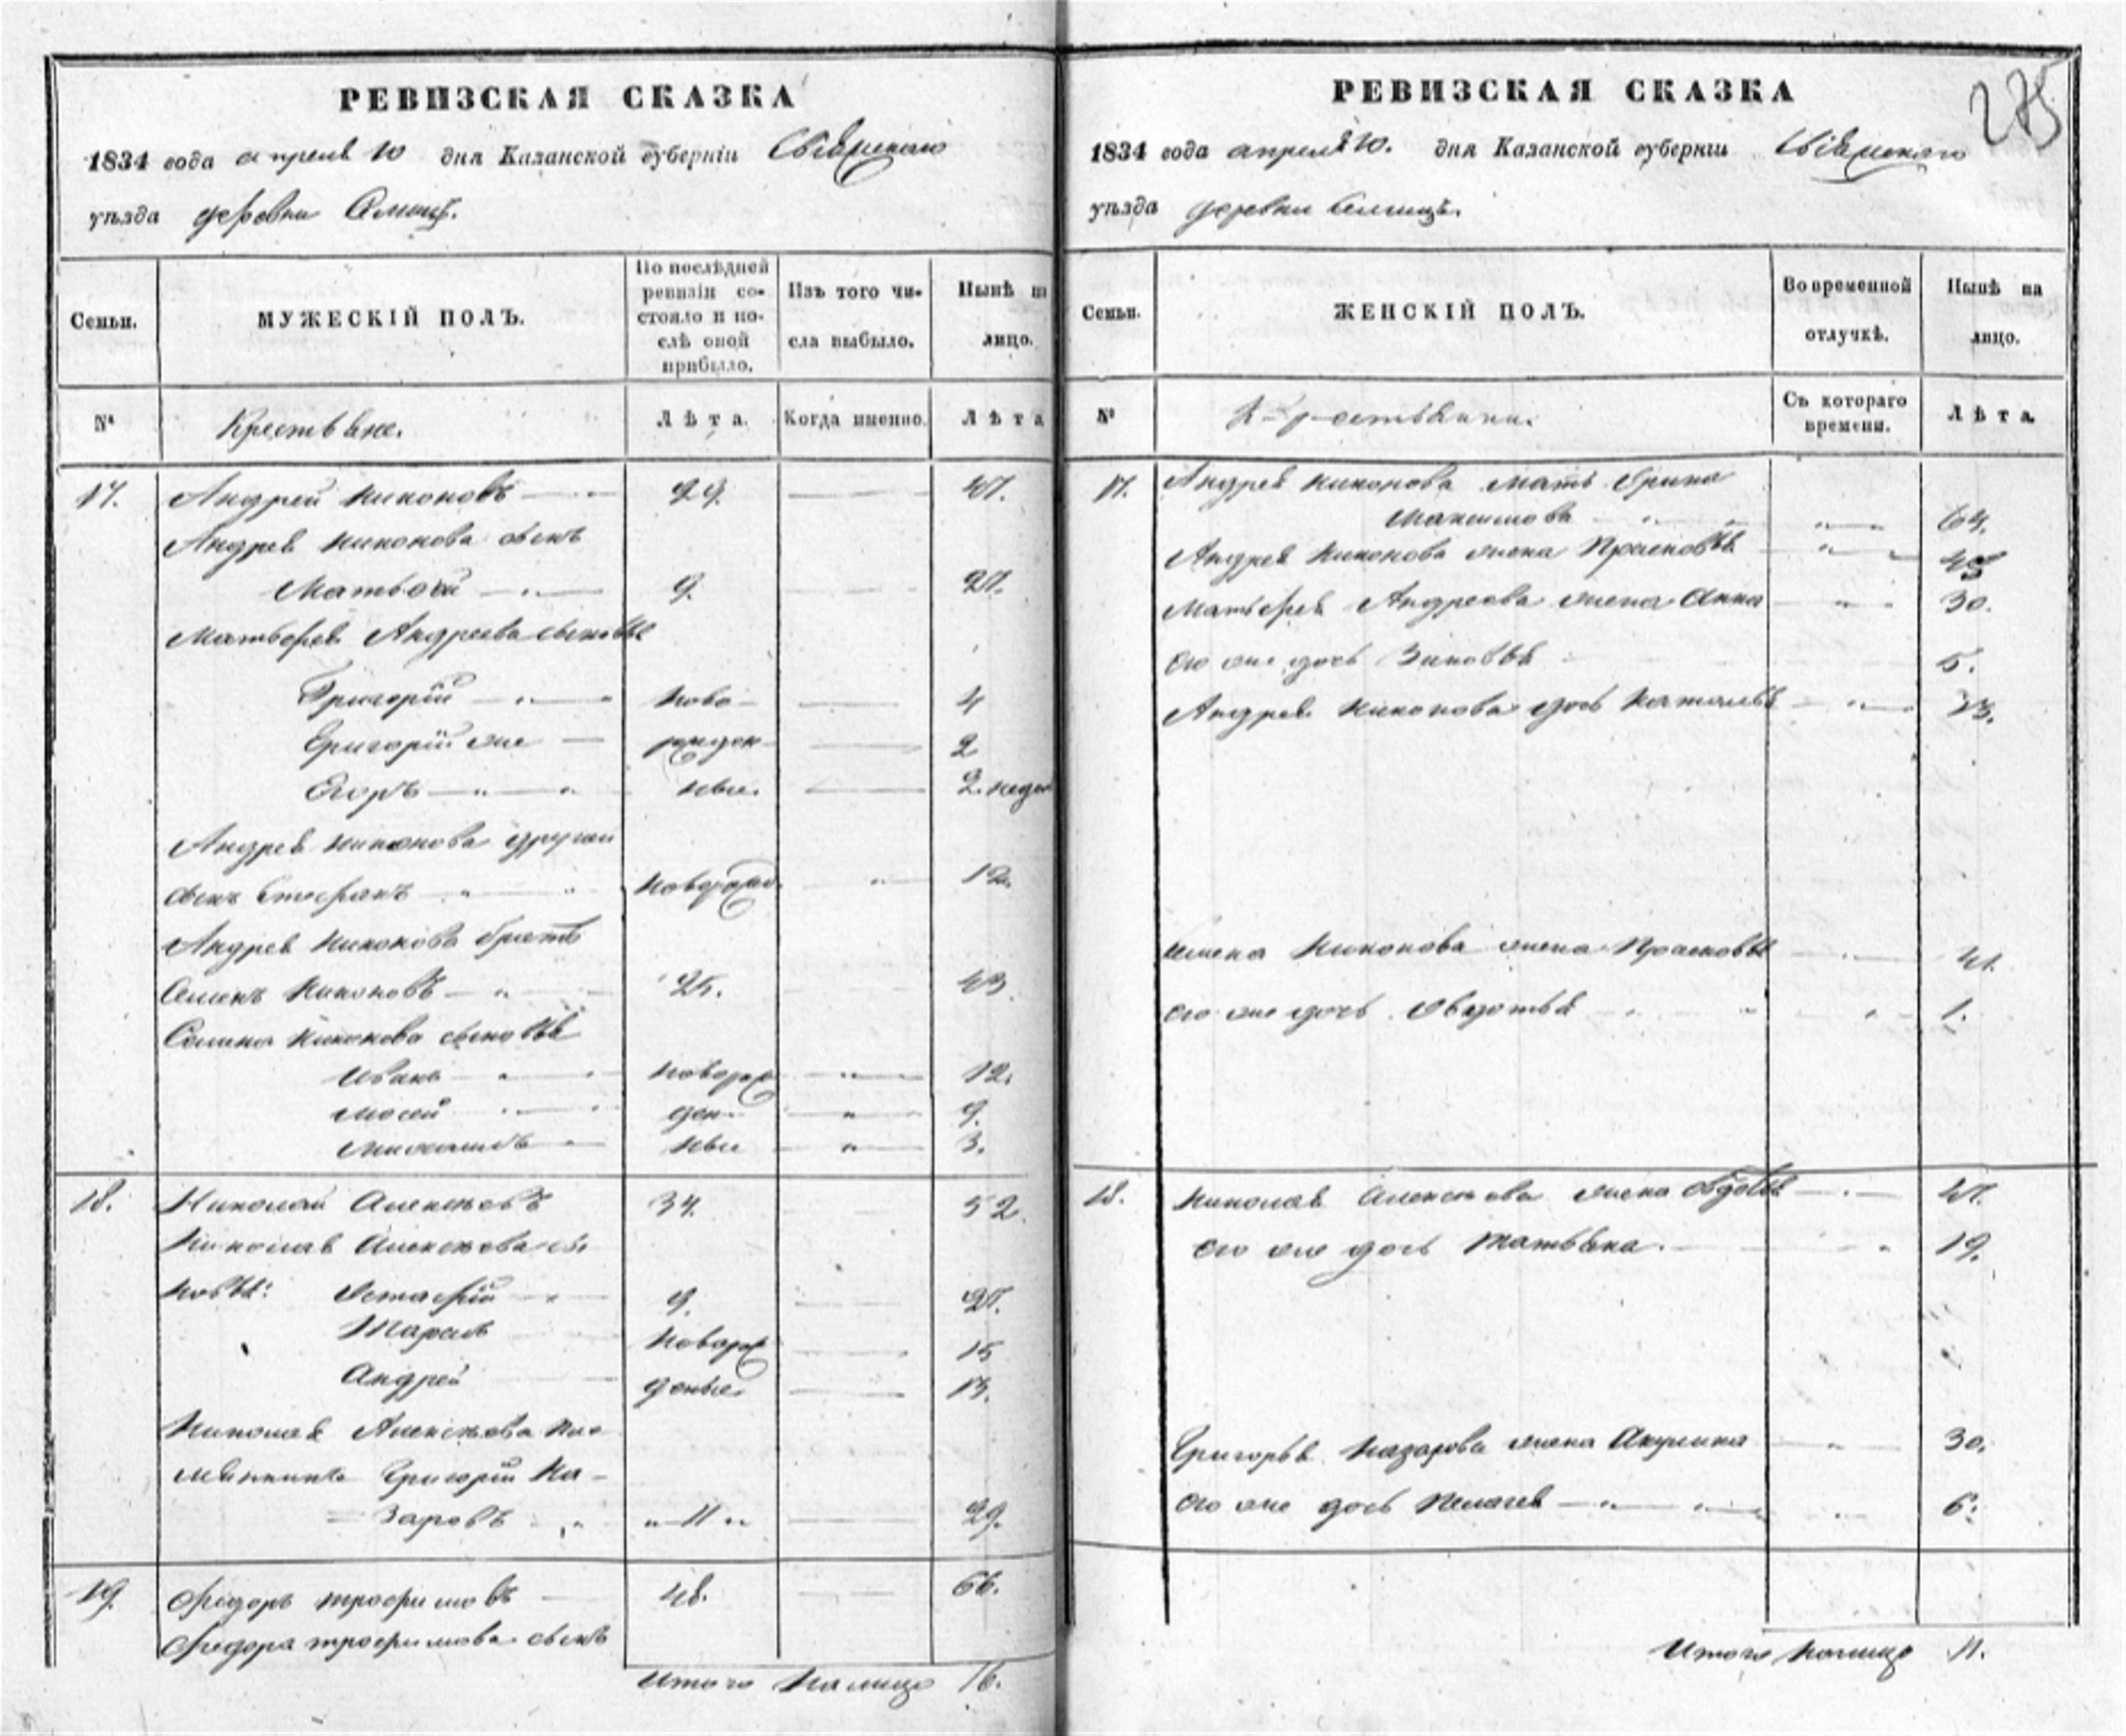 РЕВИЗСКАЯ СКАЗКА
1834 года апреля 10 дня Казанской губерніи Свіяжскаго
уѣзда деревни
Семьи.
МУЖЕСКІЙ ПОЛЪ.
По послѣдней ревизіи состояло и послѣ оной прибыло.
Изъ того числа выбыло.
Нынѣ на лицо.
№
Крестьяне.
Лѣта.
Когда именно.
Лѣта
17. Андрей Никоновъ 29. 47.
Андрея Никонова сынъ
Матвей 9. 27.
Матвѣя Андреева сыновья
Григорій ново 4
Григорій же рожден 2
Егоръ ные. 2. недел
Андрея Никонова другой
сынъ Стефанъ новорожд. 12.
Андрея Никонова братъ
Семенъ Никоновъ 25. 43
Семена Никонова сыновья
Иванъ новорож 12.
Мосей ден 9.
Михаилъ ные 3.
18. Николай Алексѣевъ 34. 52.
Николая Алексѣева сы
новья: Естафій 9. 27.
Тарасъ новорож 15
Андрей деные 13.
Николая Алексѣева пле
мянникъ Григорій На-
заровъ 11 29.
19. Федоръ Трофимовъ 48. 66.
Федора Трофимова сынъ
Итого налицо 16.
275
РЕВИЗСКАЯ СКАЗКА
1834 года апреля 10. дня Казанской губерніи Свіяжскаго
уѣзда деревни
Семьи.
ЖЕНСКІЙ ПОЛЪ.
Во временной отлучкѣ.
Нынѣ на лицо.
№
Крестьянки.
Съ котораго времени.
Лѣта.
17. Андрея Никонова мать Ирина
Максимова 64.
Андрея Никонова жена Прасковья 45
Матвѣя Андреева жена Анна 30.
его же дочь Зиновья 5.
Андрея Никонова дочь Наталья 23.
Семена Никонова жена Прасковья 41.
его же дочь Овдотья 1.
18. Николая Алексѣева жена 47.
его же дочь Татьяна. 19.
Григорья Назарова жена Акулина 30.
его же дочь Пелагея 6.
Итого налицо 11.